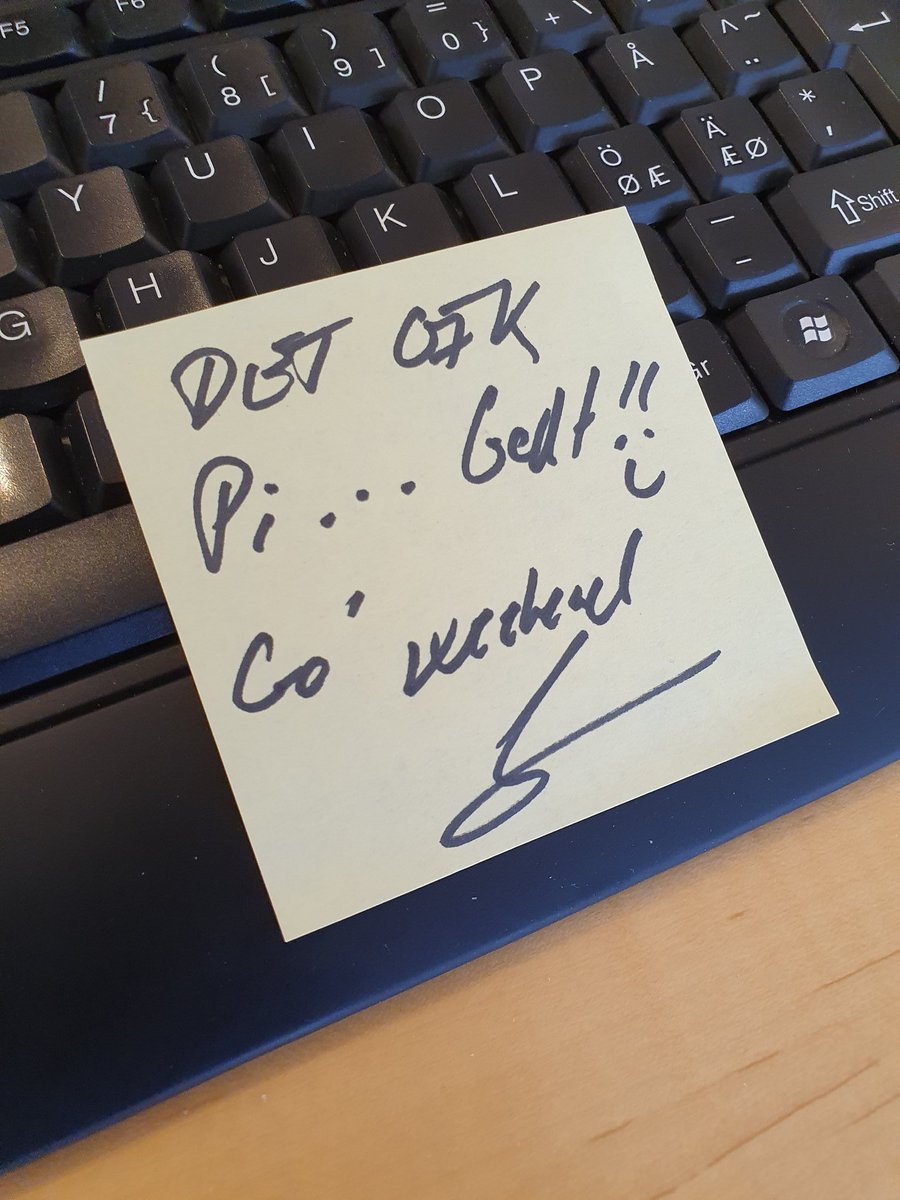 F5 F6
/ 7 { ( 8 [ ) 9 ] = 0 } + \
Y U I O P Å ^ ~ ¨
G H J K L Ö Ø Æ Ä Æ Ø * '
_ - ⇧ Shift
Gr
DET GIK
Pi... Godt!!
:)
Go' weekend